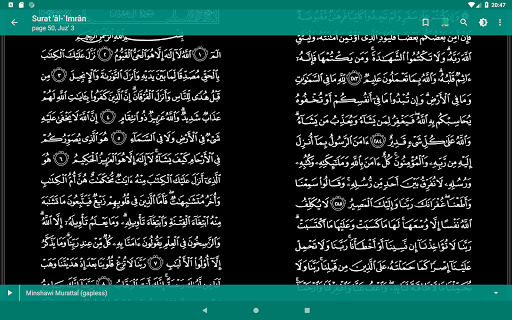 20:47
Surat 'āl-`Imrān
page 50, Juz' 3
فَإِنْ أَمِنَ بَعْضُكُم بَعْضًا فَلْيُؤَدِّ ٱلَّذِى ٱؤْتُمِنَ أَمَـٰنَتَهُۥ وَلْيَتَّقِ
ٱللَّهَ رَبَّهُۥ ۗ وَلَا تَكْتُمُوا۟ ٱلشَّهَـٰدَةَ ۚ وَمَن يَكْتُمْهَا فَإِنَّهُۥٓ
ءَاثِمٌ قَلْبُهُۥ ۗ وَٱللَّهُ بِمَا تَعْمَلُونَ عَلِيمٌ ٢٨٣ لِّلَّهِ مَا فِى ٱلسَّمَـٰوَٰتِ
وَمَا فِى ٱلْأَرْضِ ۗ وَإِن تُبْدُوا۟ مَا فِىٓ أَنفُسِكُمْ أَوْ تُخْفُوهُ
يُحَاسِبْكُم بِهِ ٱللَّهُ ۖ فَيَغْفِرُ لِمَن يَشَآءُ وَيُعَذِّبُ مَن يَشَآءُ ۗ
وَٱللَّهُ عَلَىٰ كُلِّ شَىْءٍ قَدِيرٌ ٢٨٤ ءَامَنَ ٱلرَّسُولُ بِمَآ أُنزِلَ
إِلَيْهِ مِن رَّبِّهِۦ وَٱلْمُؤْمِنُونَ ۚ كُلٌّ ءَامَنَ بِٱللَّهِ وَمَلَـٰٓئِكَتِهِۦ وَكُتُبِهِۦ
وَرُسُلِهِۦ لَا نُفَرِّقُ بَيْنَ أَحَدٍ مِّن رُّسُلِهِۦ ۚ وَقَالُوا۟ سَمِعْنَا
وَأَطَعْنَا ۖ غُفْرَانَكَ رَبَّنَا وَإِلَيْكَ ٱلْمَصِيرُ ٢٨٥ لَا يُكَلِّفُ
ٱللَّهُ نَفْسًا إِلَّا وُسْعَهَا ۚ لَهَا مَا كَسَبَتْ وَعَلَيْهَا مَا ٱكْتَسَبَتْ ۗ
رَبَّنَا لَا تُؤَاخِذْنَآ إِن نَّسِينَآ أَوْ أَخْطَأْنَا ۚ رَبَّنَا وَلَا تَحْمِلْ
عَلَيْنَآ إِصْرًا كَمَا حَمَلْتَهُۥ عَلَى ٱلَّذِينَ مِن قَبْلِنَا ۚ رَبَّنَا وَلَا
الٓمٓ ١ ٱللَّهُ لَآ إِلَـٰهَ إِلَّا هُوَ ٱلْحَىُّ ٱلْقَيُّومُ ٢ نَزَّلَ عَلَيْكَ ٱلْكِتَـٰبَ
بِٱلْحَقِّ مُصَدِّقًا لِّمَا بَيْنَ يَدَيْهِ وَأَنزَلَ ٱلتَّوْرَىٰةَ وَٱلْإِنجِيلَ ٣ مِن
قَبْلُ هُدًى لِّلنَّاسِ وَأَنزَلَ ٱلْفُرْقَانَ ۗ إِنَّ ٱلَّذِينَ كَفَرُوا۟ بِـَٔايَـٰتِ ٱللَّهِ لَهُمْ
عَذَابٌ شَدِيدٌ ۗ وَٱللَّهُ عَزِيزٌ ذُو ٱنتِقَامٍ ٤ إِنَّ ٱللَّهَ لَا يَخْفَىٰ عَلَيْهِ
شَىْءٌ فِى ٱلْأَرْضِ وَلَا فِى ٱلسَّمَآءِ ٥ هُوَ ٱلَّذِى يُصَوِّرُكُمْ
فِى ٱلْأَرْحَامِ كَيْفَ يَشَآءُ ۚ لَآ إِلَـٰهَ إِلَّا هُوَ ٱلْعَزِيزُ ٱلْحَكِيمُ ٦ هُوَ
ٱلَّذِىٓ أَنزَلَ عَلَيْكَ ٱلْكِتَـٰبَ مِنْهُ ءَايَـٰتٌ مُّحْكَمَـٰتٌ هُنَّ أُمُّ ٱلْكِتَـٰبِ
وَأُخَرُ مُتَشَـٰبِهَـٰتٌ ۖ فَأَمَّا ٱلَّذِينَ فِى قُلُوبِهِمْ زَيْغٌ فَيَتَّبِعُونَ مَا تَشَـٰبَهَ
مِنْهُ ٱبْتِغَآءَ ٱلْفِتْنَةِ وَٱبْتِغَآءَ تَأْوِيلِهِۦ ۗ وَمَا يَعْلَمُ تَأْوِيلَهُۥٓ إِلَّا ٱللَّهُ ۗ
وَٱلرَّٰسِخُونَ فِى ٱلْعِلْمِ يَقُولُونَ ءَامَنَّا بِهِۦ كُلٌّ مِّنْ عِندِ رَبِّنَا ۗ وَمَا يَذَّكَّرُ
إِلَّآ أُو۟لُوا۟ ٱلْأَلْبَـٰبِ ٧ رَبَّنَا لَا تُزِغْ قُلُوبَنَا بَعْدَ إِذْ هَدَيْتَنَا وَهَبْ
Minshawi Murattal (gapless)